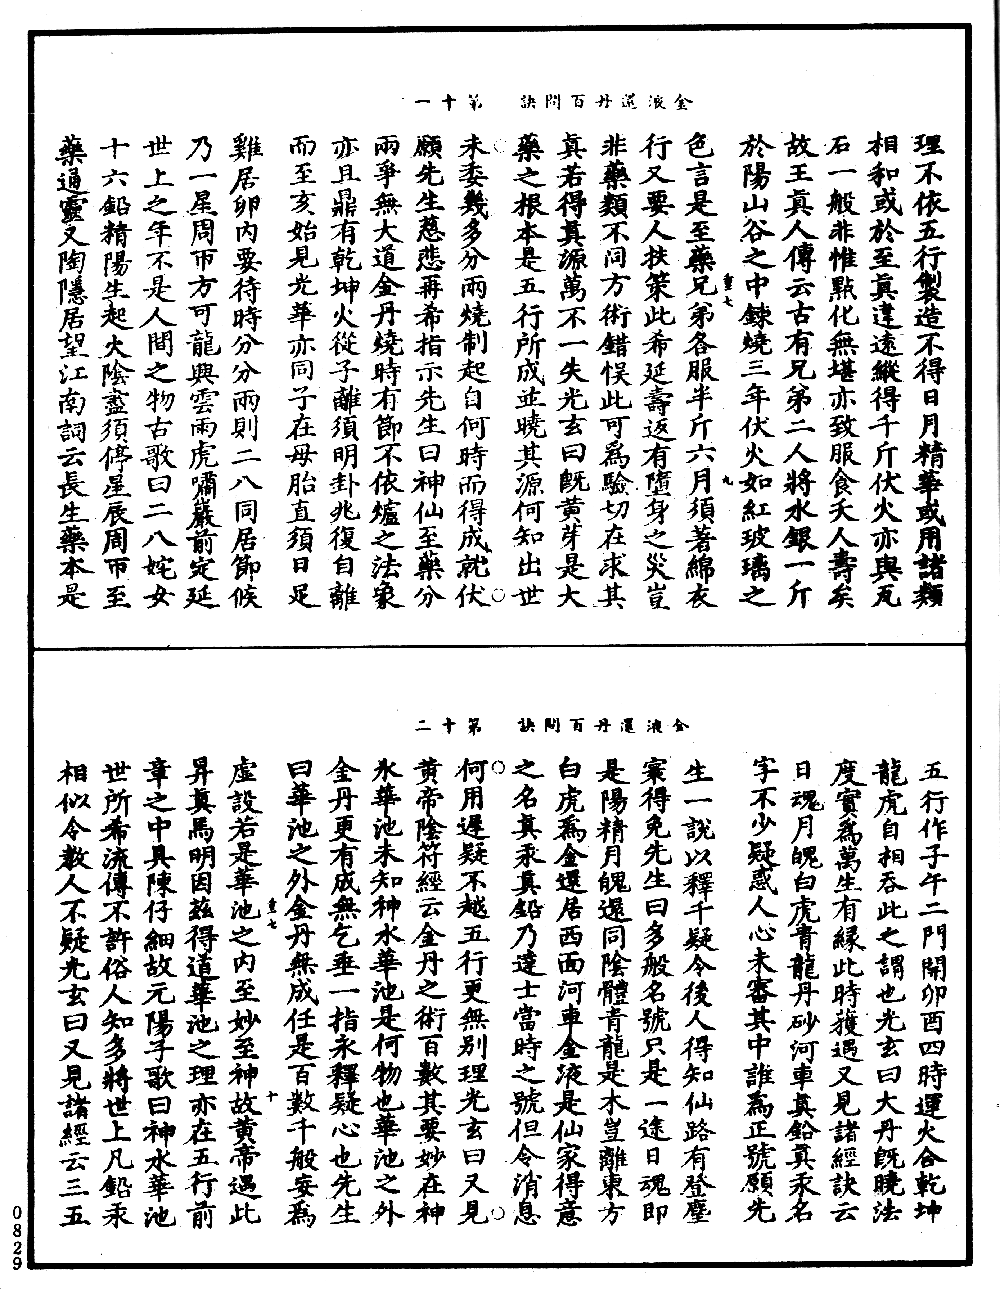 金液還丹百問訣　第十一
理不依五行製造不得日月精華或用諸類
相和或於至真違遠縱得千斤伏火亦與瓦
石一般非惟點化無堪亦致服食夭人壽矣
故王真人傳云古有兄弟二人將水銀一斤
於陽山谷之中鍊燒三年伏火如紅玻璃之
重七　九
色言是至藥兄弟各服半斤六月須著綿衣
行又要人扶策此希延壽返有墮身之災豈
非藥類不同方術錯悮此可為驗切在求其
真若得真源萬不一失光玄曰旣黃芽是大
藥之根本是五行所成並曉其源何知出世
未委幾多分兩燒制起自何時而得成就伏
願先生慈悲再希指示先生曰神仙至藥分
兩爭無大道金丹燒時有節不依爐之法象
亦且鼎有乾坤火從子離須明卦兆復自離
而至亥始見光華亦同子在母胎直須日足
雞居卵內要待時分分兩則二八同居節候
乃一星周帀方可龍興雲雨虎嘯巖前定延
世上之年不是人間之物古歌曰二八姹女
十六鉛精陽生起火陰盡須停星辰周帀至
藥通靈又陶隱居望江南詞云長生藥本是
金液還丹百問訣　第十二
五行作子午二門開卯酉四時運火合乾坤
龍虎自相吞此之謂也光玄曰大丹旣曉法
度實為萬生有緣此時獲遇又見諸經訣云
日魂月魄白虎青龍丹砂河車真鉛真汞名
字不少疑惑人心未審其中誰為正號願先
生一說以釋千疑令後人得知仙路有登塵
寰得免先生曰多般名號只是一途日魂即
是陽精月魄還同陰體青龍是木豈離東方
白虎為金還居西面河車金液是仙家得意
之名真汞真鉛乃達士當時之號但令消息
何用遲疑不越五行更無別理光玄曰又見
黃帝陰符經云金丹之術百數其要妙在神
水華池未知神水華池是何物也華池之外
金丹更有成無乞垂一指永釋疑心也先生
曰華池之外金丹無成任是百數千般妄為
重七　十
虛設若是華池之內至妙至神故黃帝遇此
昇真馬明因茲得道華池之理亦在五行前
章之中具陳仔細故元陽子歌曰神水華池
世所希流傳不許俗人知多將世上凡鉛汞
相似令教人不疑光玄曰又見諸經云三五
0829